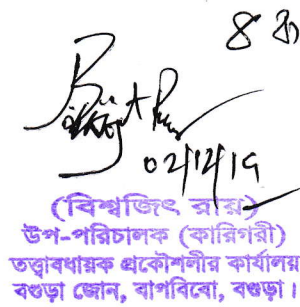 02/12/19
(বিশ্বজিৎ রায়)
উপ-পরিচালক (কারিগরী)
তত্ত্বাবধায়ক প্রকৌশলীর কার্যালয়
বগুড়া জোন, বাপবিবো, বগুড়া।